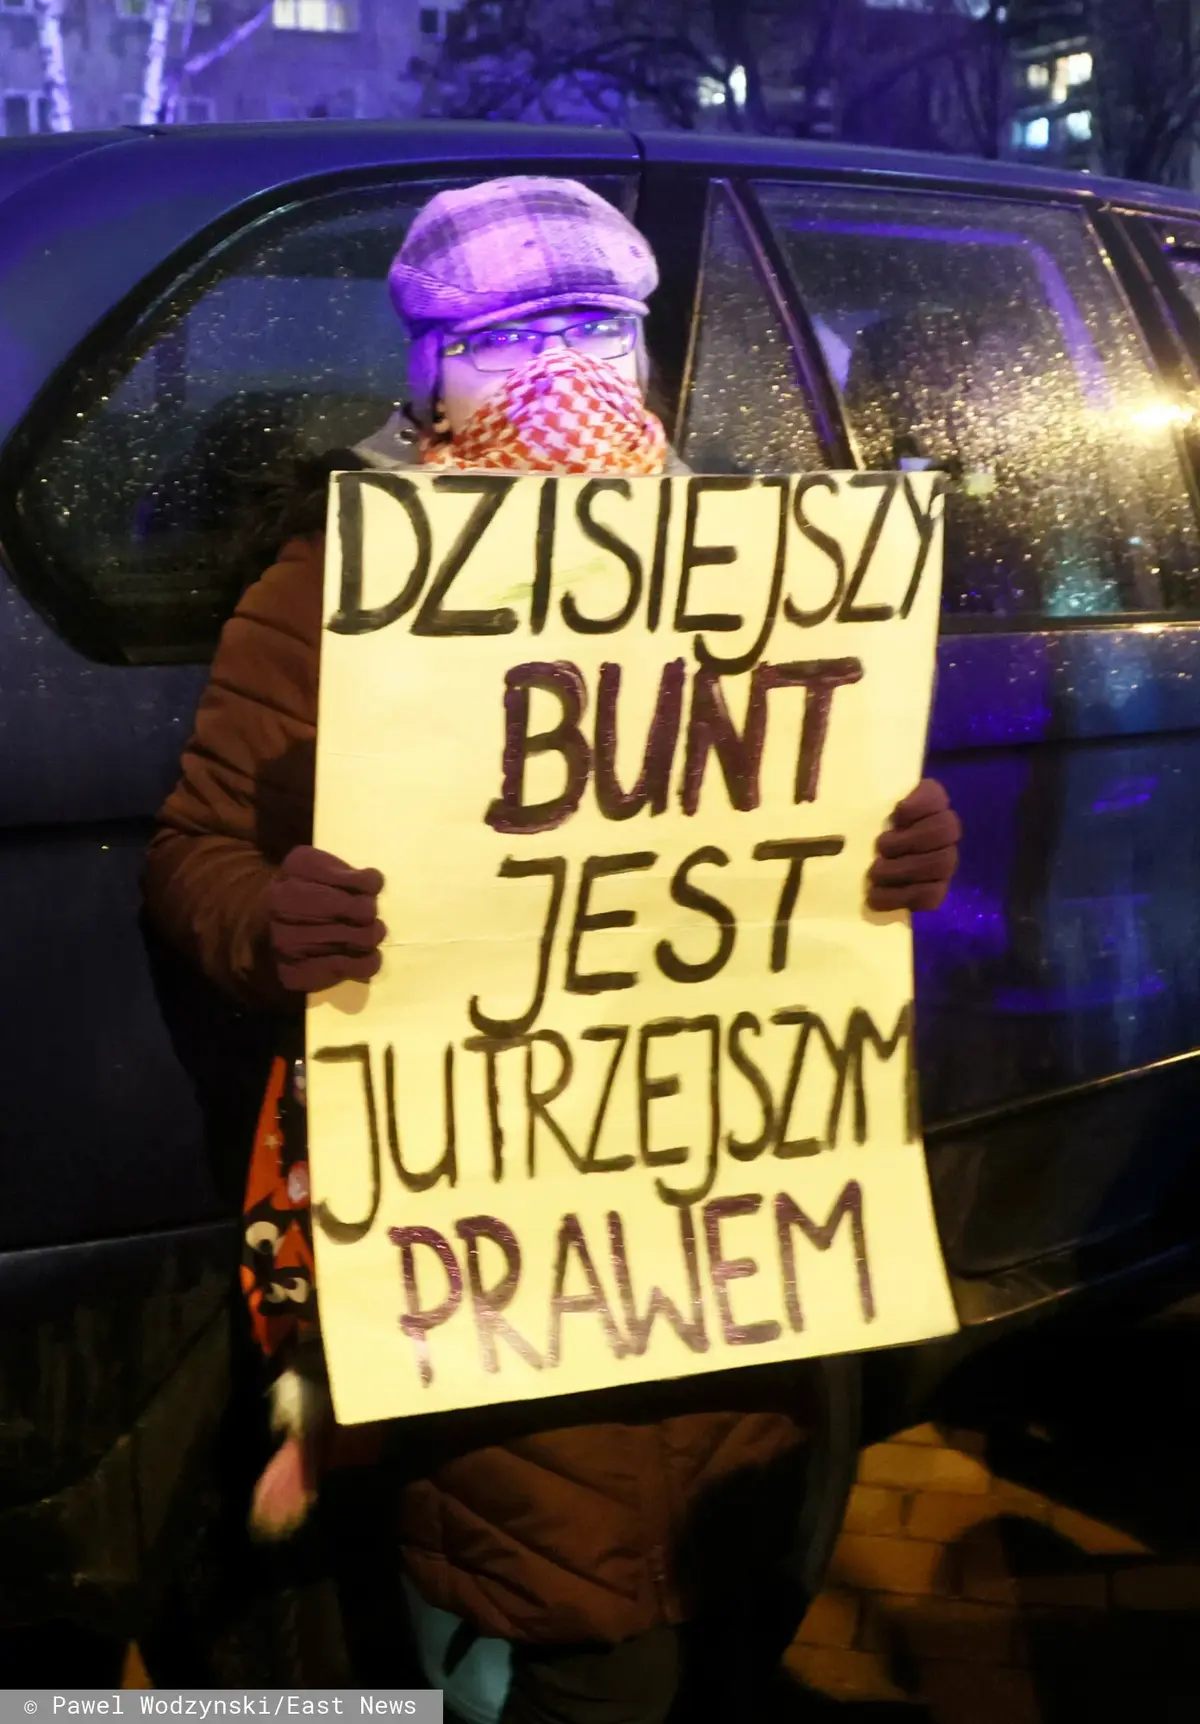 DZISIEJSZY
BUNT
JEST
JUTRZEJSZYM
PRAWEM
© Pawel Wodzynski/East News